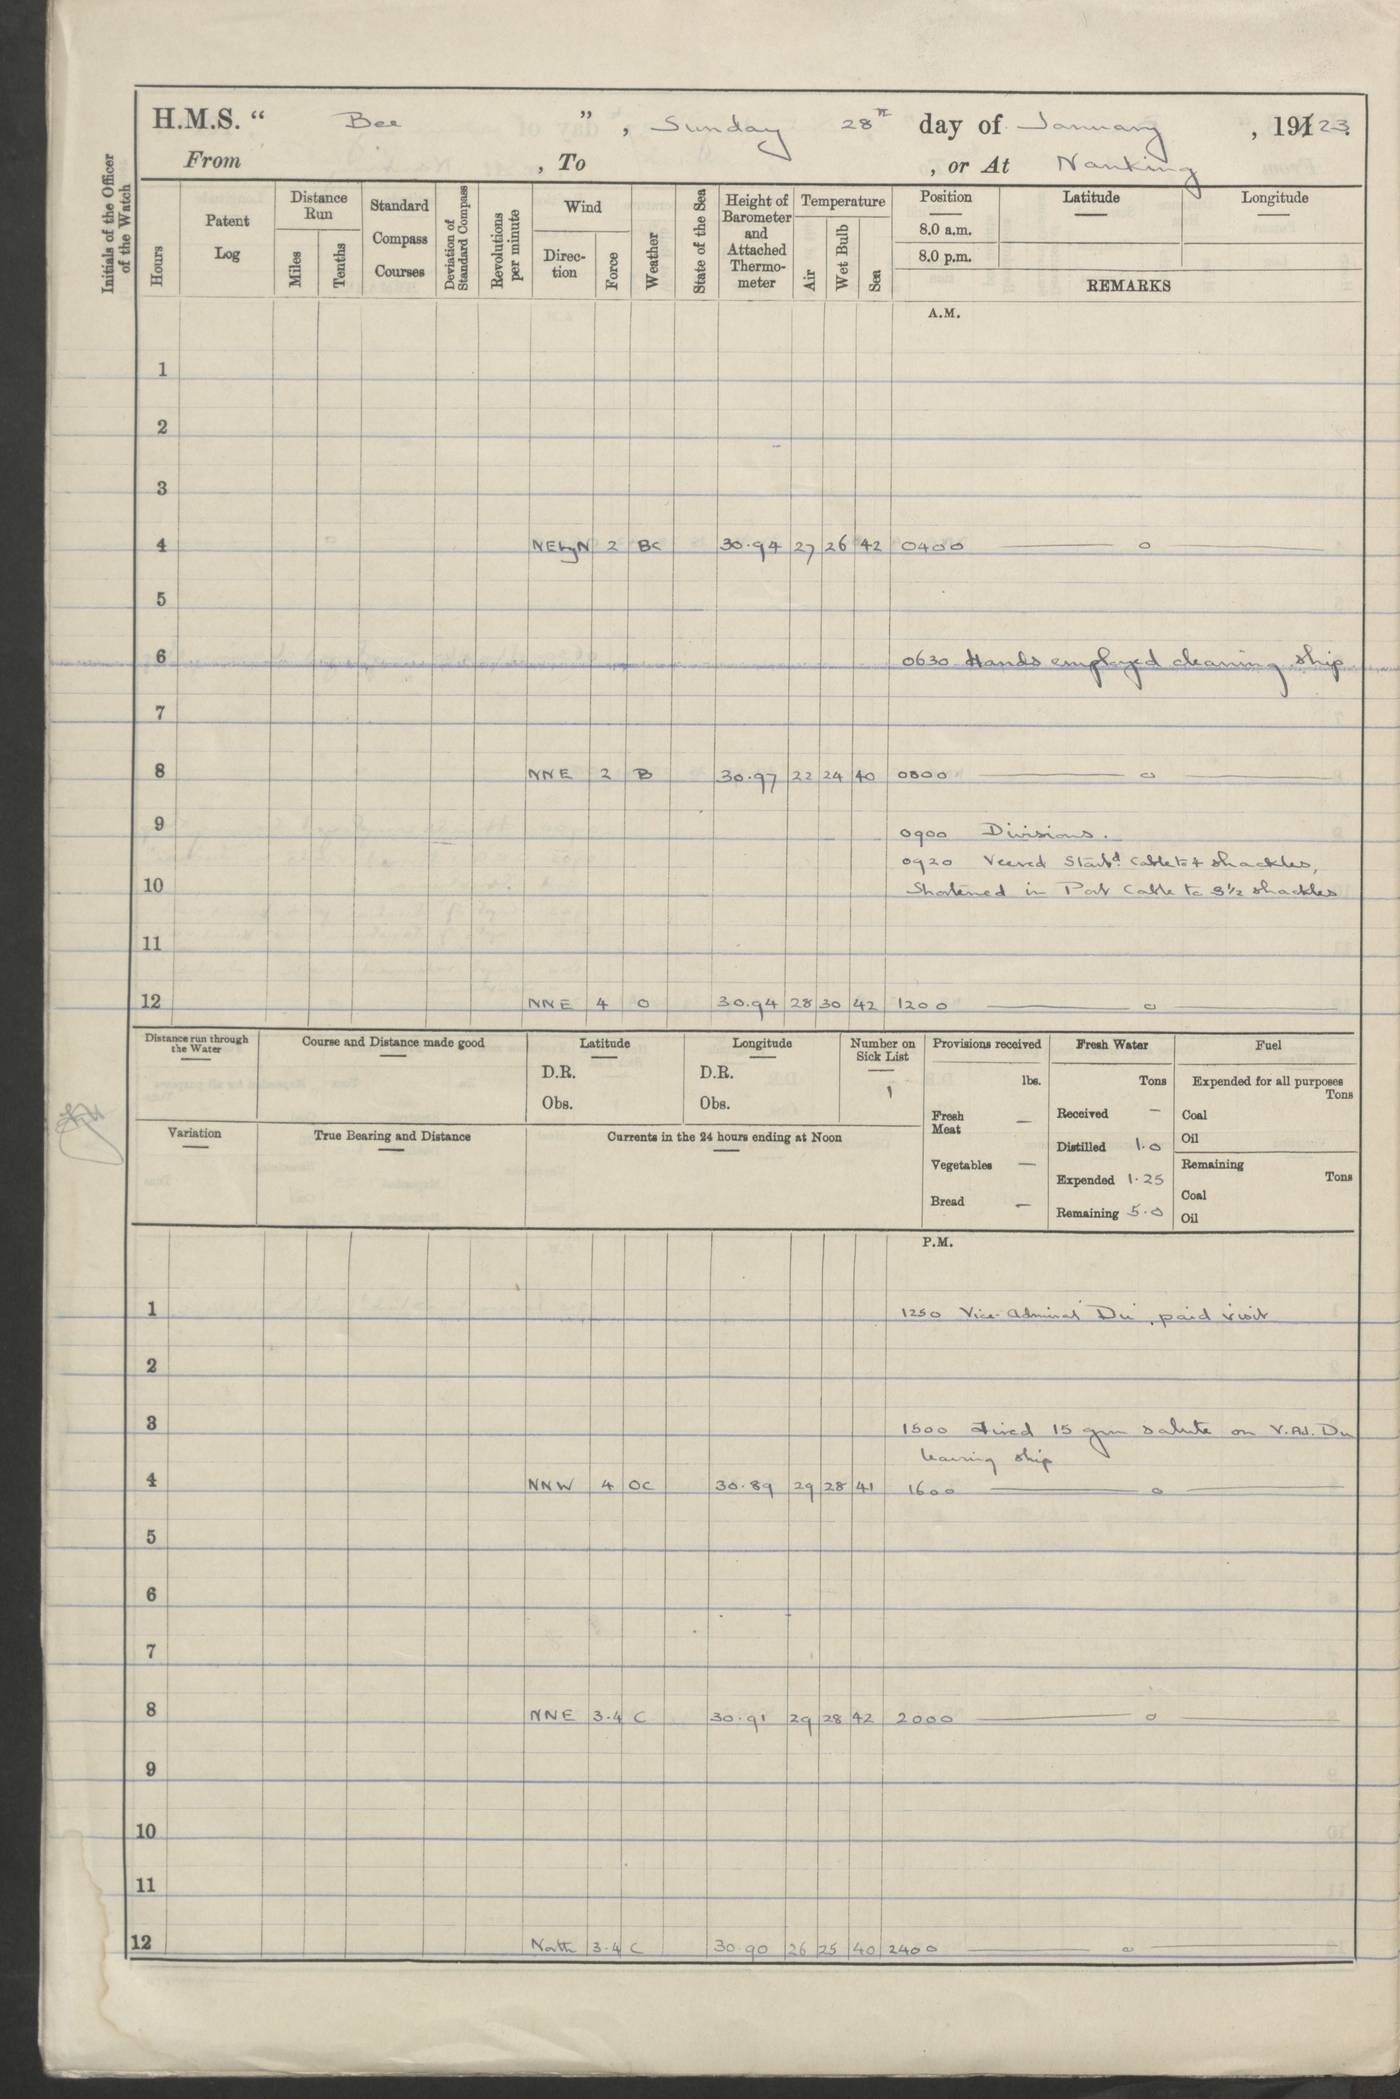 H.M.S. “ Bee ” , Sunday 28th day of January , 1923.
From , To , or At Nanking
Initials of the Officer of the Watch
Hours
Patent Log
Distance Run
Miles
Tenths
Standard Compass Courses
Deviation of Standard Compass
Revolutions per minute
Wind
Direc-tion
Force
Weather
State of the Sea
Height of Barometer and Attached Thermo-meter
Temperature
Air
Wet Bulb
Sea
Position Latitude Longitude
8.0 a.m.
8.0 p.m.
REMARKS
A.M.
1
2
3
4 NEbyN 2 BC 30.94 27 26 42 0400 — o —
5
6 0630 Hands employed cleaning ship
7
8 NNE 2 B 30.97 22 24 40 0800 — o —
9 0900 Divisions.
0920 Veered Starbd. Cable to 4 shackles,
10 Shortened in Port Cable to 3½ shackles
11
12 NNE 4 O 30.94 28 30 42 1200 — o —
Distance run through the Water
Course and Distance made good
Latitude
D.R.
Obs.
Longitude
D.R.
Obs.
Number on Sick List
1
Variation
True Bearing and Distance
Currents in the 24 hours ending at Noon
Provisions received
lbs.
Fresh Meat —
Vegetables —
Bread —
Fresh Water
Tons
Received —
Distilled 1.0
Expended 1.25
Remaining 5.0
Fuel
Expended for all purposes
Tons
Coal
Oil
Remaining
Tons
Coal
Oil
P.M.
1 1250 Vice-Admiral Du, paid visit
2
3 1500 Fired 15 gun salute on V.Ad. Du
leaving ship
4 NNW 4 OC 30.89 29 28 41 1600 — o —
5
6
7
8 NNE 3.4 C 30.91 29 28 42 2000 — o —
9
10
11
12 North 3.4 C 30.90 26 25 40 2400 — o —